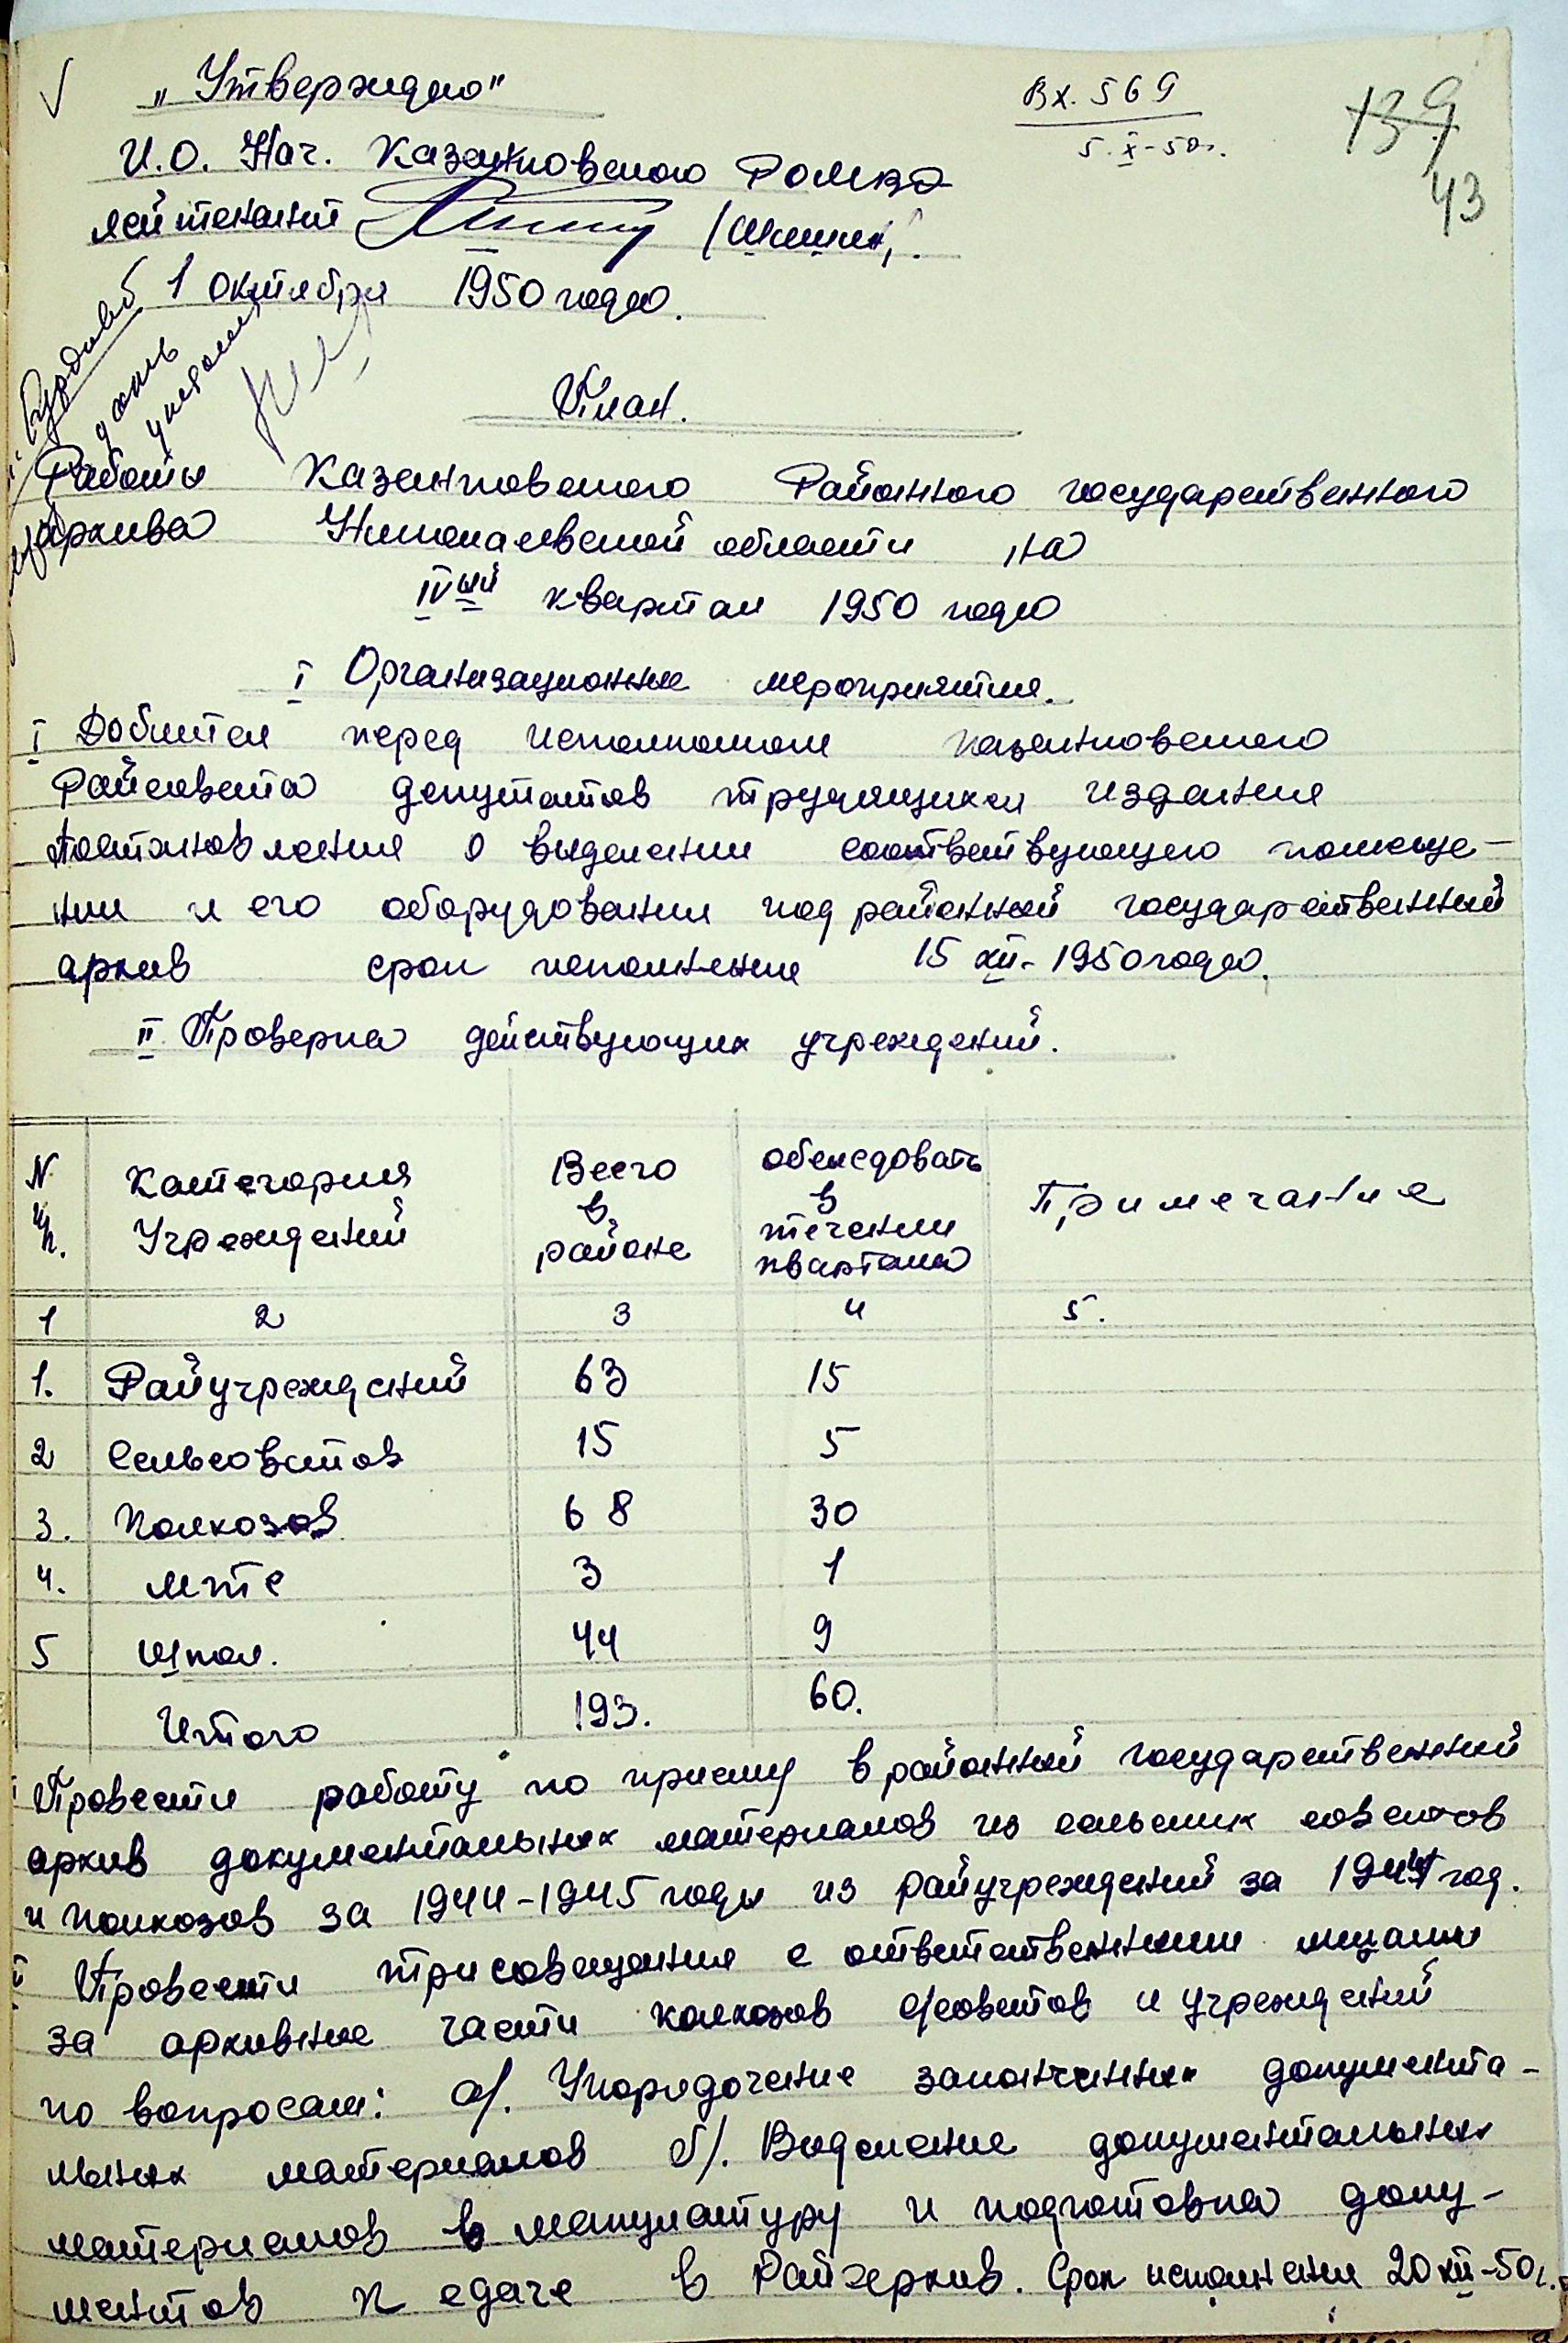 „Утверждаю"
Вх. 569
5.X-50г.
139
43
И.О. Нач. Казанковского РОМВД
лейтенант /Шишкин/.
1 октября 1950 года.
План.
Работы Казанковского Районного государственного
архива Николаевской области на
IVый квартал 1950 года
I Организационные мероприятия.
I Добится перед исполкомом казанковского
Райсовета депутатов трудящихся издания
постановления о выделении соответствующего помеще-
нии и его оборудовании под районный государственный
архив срок исполнения 15 XII-1950 года.
II Проверка действующих учреждений.
N п/п. Категория Учреждений Всего в районе обследовать в течении квартала Примечание
1 2 3 4 5.
1. Райучреждений 63 15
2 Сельсоветов 15 5
3. Колхозов 68 30
4. МТС 3 1
5 Школ. 44 9
Итого 193. 60.
Провести работу по приему в районный государственный
архив документальных материалов из сельских советов
и колхозов за 1944-1945 годы из райучреждений за 1944 год.
Провести три совещания с ответственными лицами
за архивные части колхозов с/советов и учреждений
по вопросам: а/. Упорядочение законченных документа-
льных материалов б/. Выделение документальных
материалов в макулатуру и подготовка доку-
ментов к сдаче в Райархив. Срок исполнения 20 XII-50г.